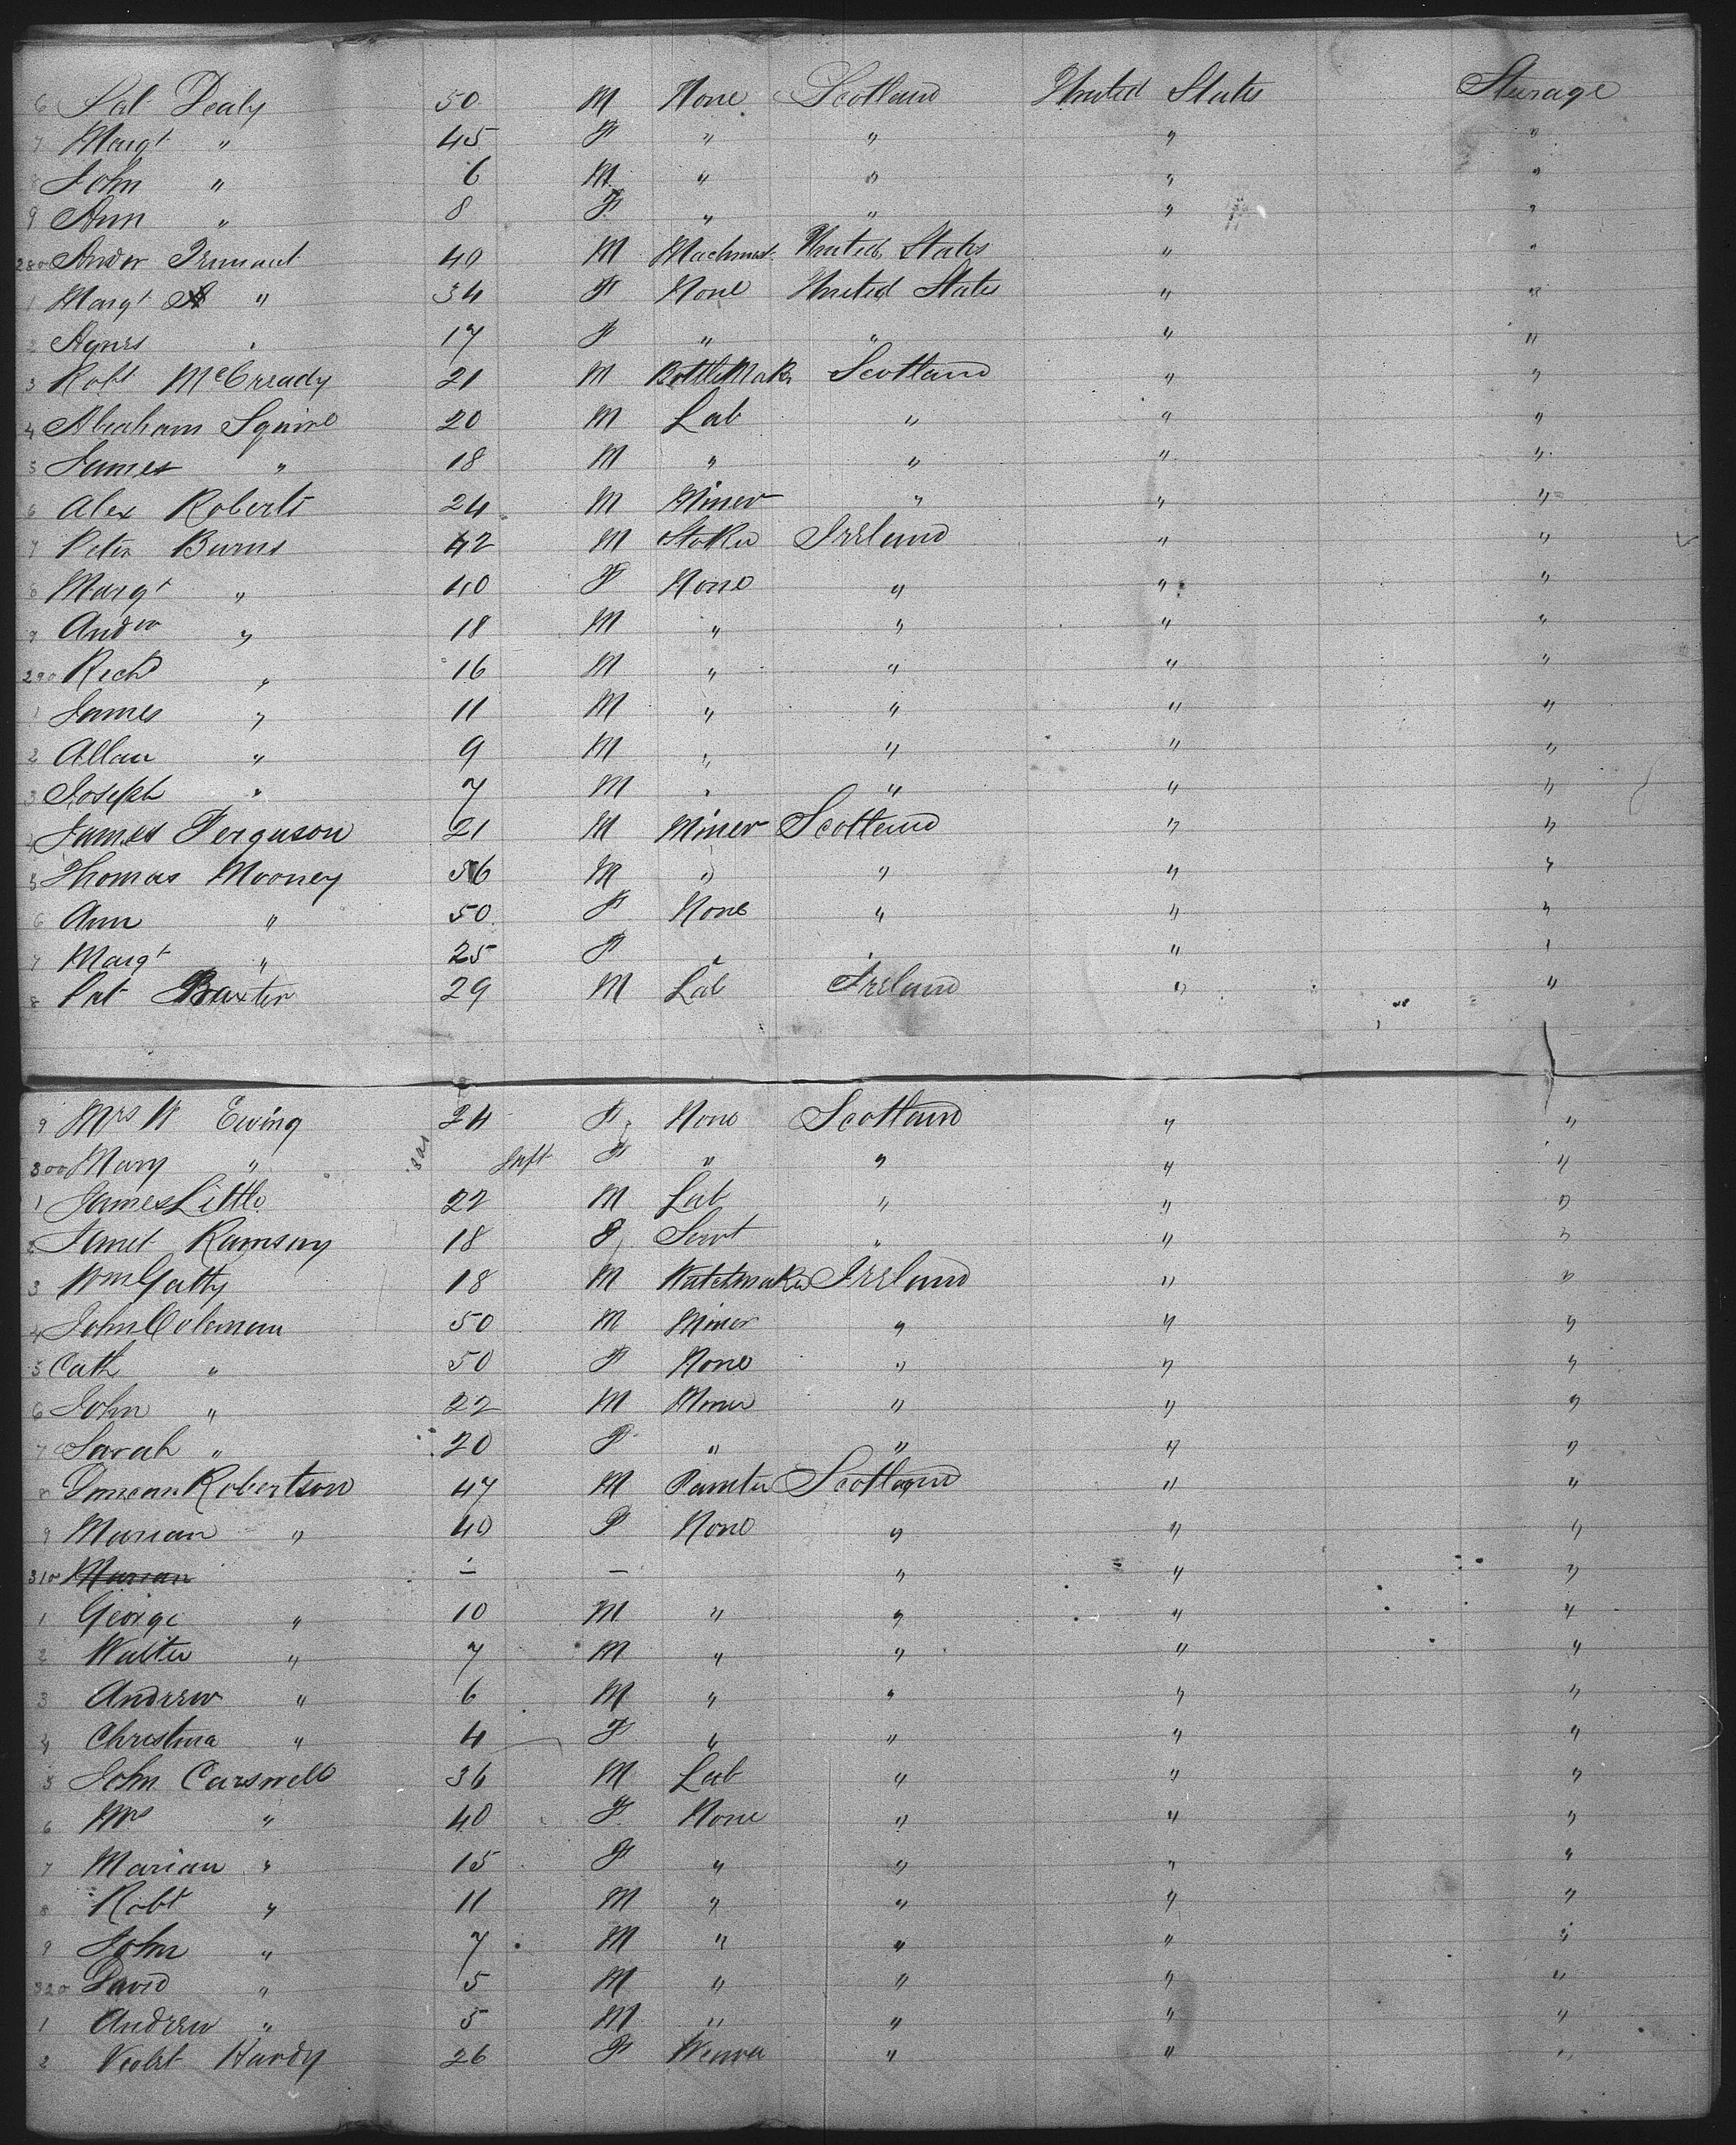 6 Pat Dealy 50 M None Scotland United States Steerage
7 Margt " 45 F " " " "
8 John " 6 M " " " "
9 Ann " 8 F " " " "
280 Andw 40 M Machinest United States " "
1 Margt " 34 F None United States " "
2 Agnes " 17 F " " " "
3 Robt McCready 21 M Bottle Makr Scotland " "
4 Abraham Squire 20 M Lab " " "
5 James " 18 M " " " "
6 Alex Roberts 24 M Miner " " "
7 Peter Burns 42 M Stoker Ireland " "
8 Margt " 40 F None " " "
9 Andw " 18 M " " " "
290 Richd " 16 M " " " "
1 James " 11 M " " " "
2 Allan " 9 M " " " "
3 Joseph " 7 M " " " "
4 James Ferguson 21 M Miner Scotland " "
5 Thomas Mooney 56 M " " " "
6 Ann " 50 F None " " "
7 Margt " 25 F " " " "
8 Pat Baxter 29 M Lab Ireland " "
9 Mrs W Ewing 24 F None Scotland " "
300 Mary " Inft F " " " "
1 James Little 22 M Lab " " "
2 Janet Ramsay 18 F Servt " " "
3 Wm Gatty 18 M Watchmaker Ireland " "
4 John Coleman 50 M Miner " " "
5 Cath " 50 F None " " "
6 John " 22 M Miner " " "
7 Sarah " 20 F " " " "
8 Duncan Robertson 47 M Painter Scotland " "
9 Marian " 40 F None " " "
310 Marian – – " " "
1 George " 10 M " " " "
2 Walter " 7 M " " " "
3 Andrew " 6 M " " " "
4 Christina " 4 F " " " "
5 John Carswell 36 M Lab " " "
6 Mrs " 40 F None " " "
7 Marian " 15 F " " " "
8 Robt " 11 M " " " "
9 John " 7 M " " " "
320 David " 5 M " " " "
1 Andrew " 5 M " " " "
2 Violet Hardy 26 F Weaver " " "